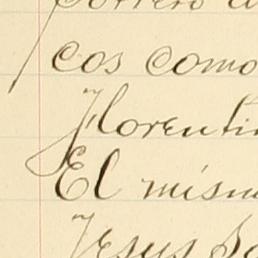 cos como
Florenti
El mism
Jesus